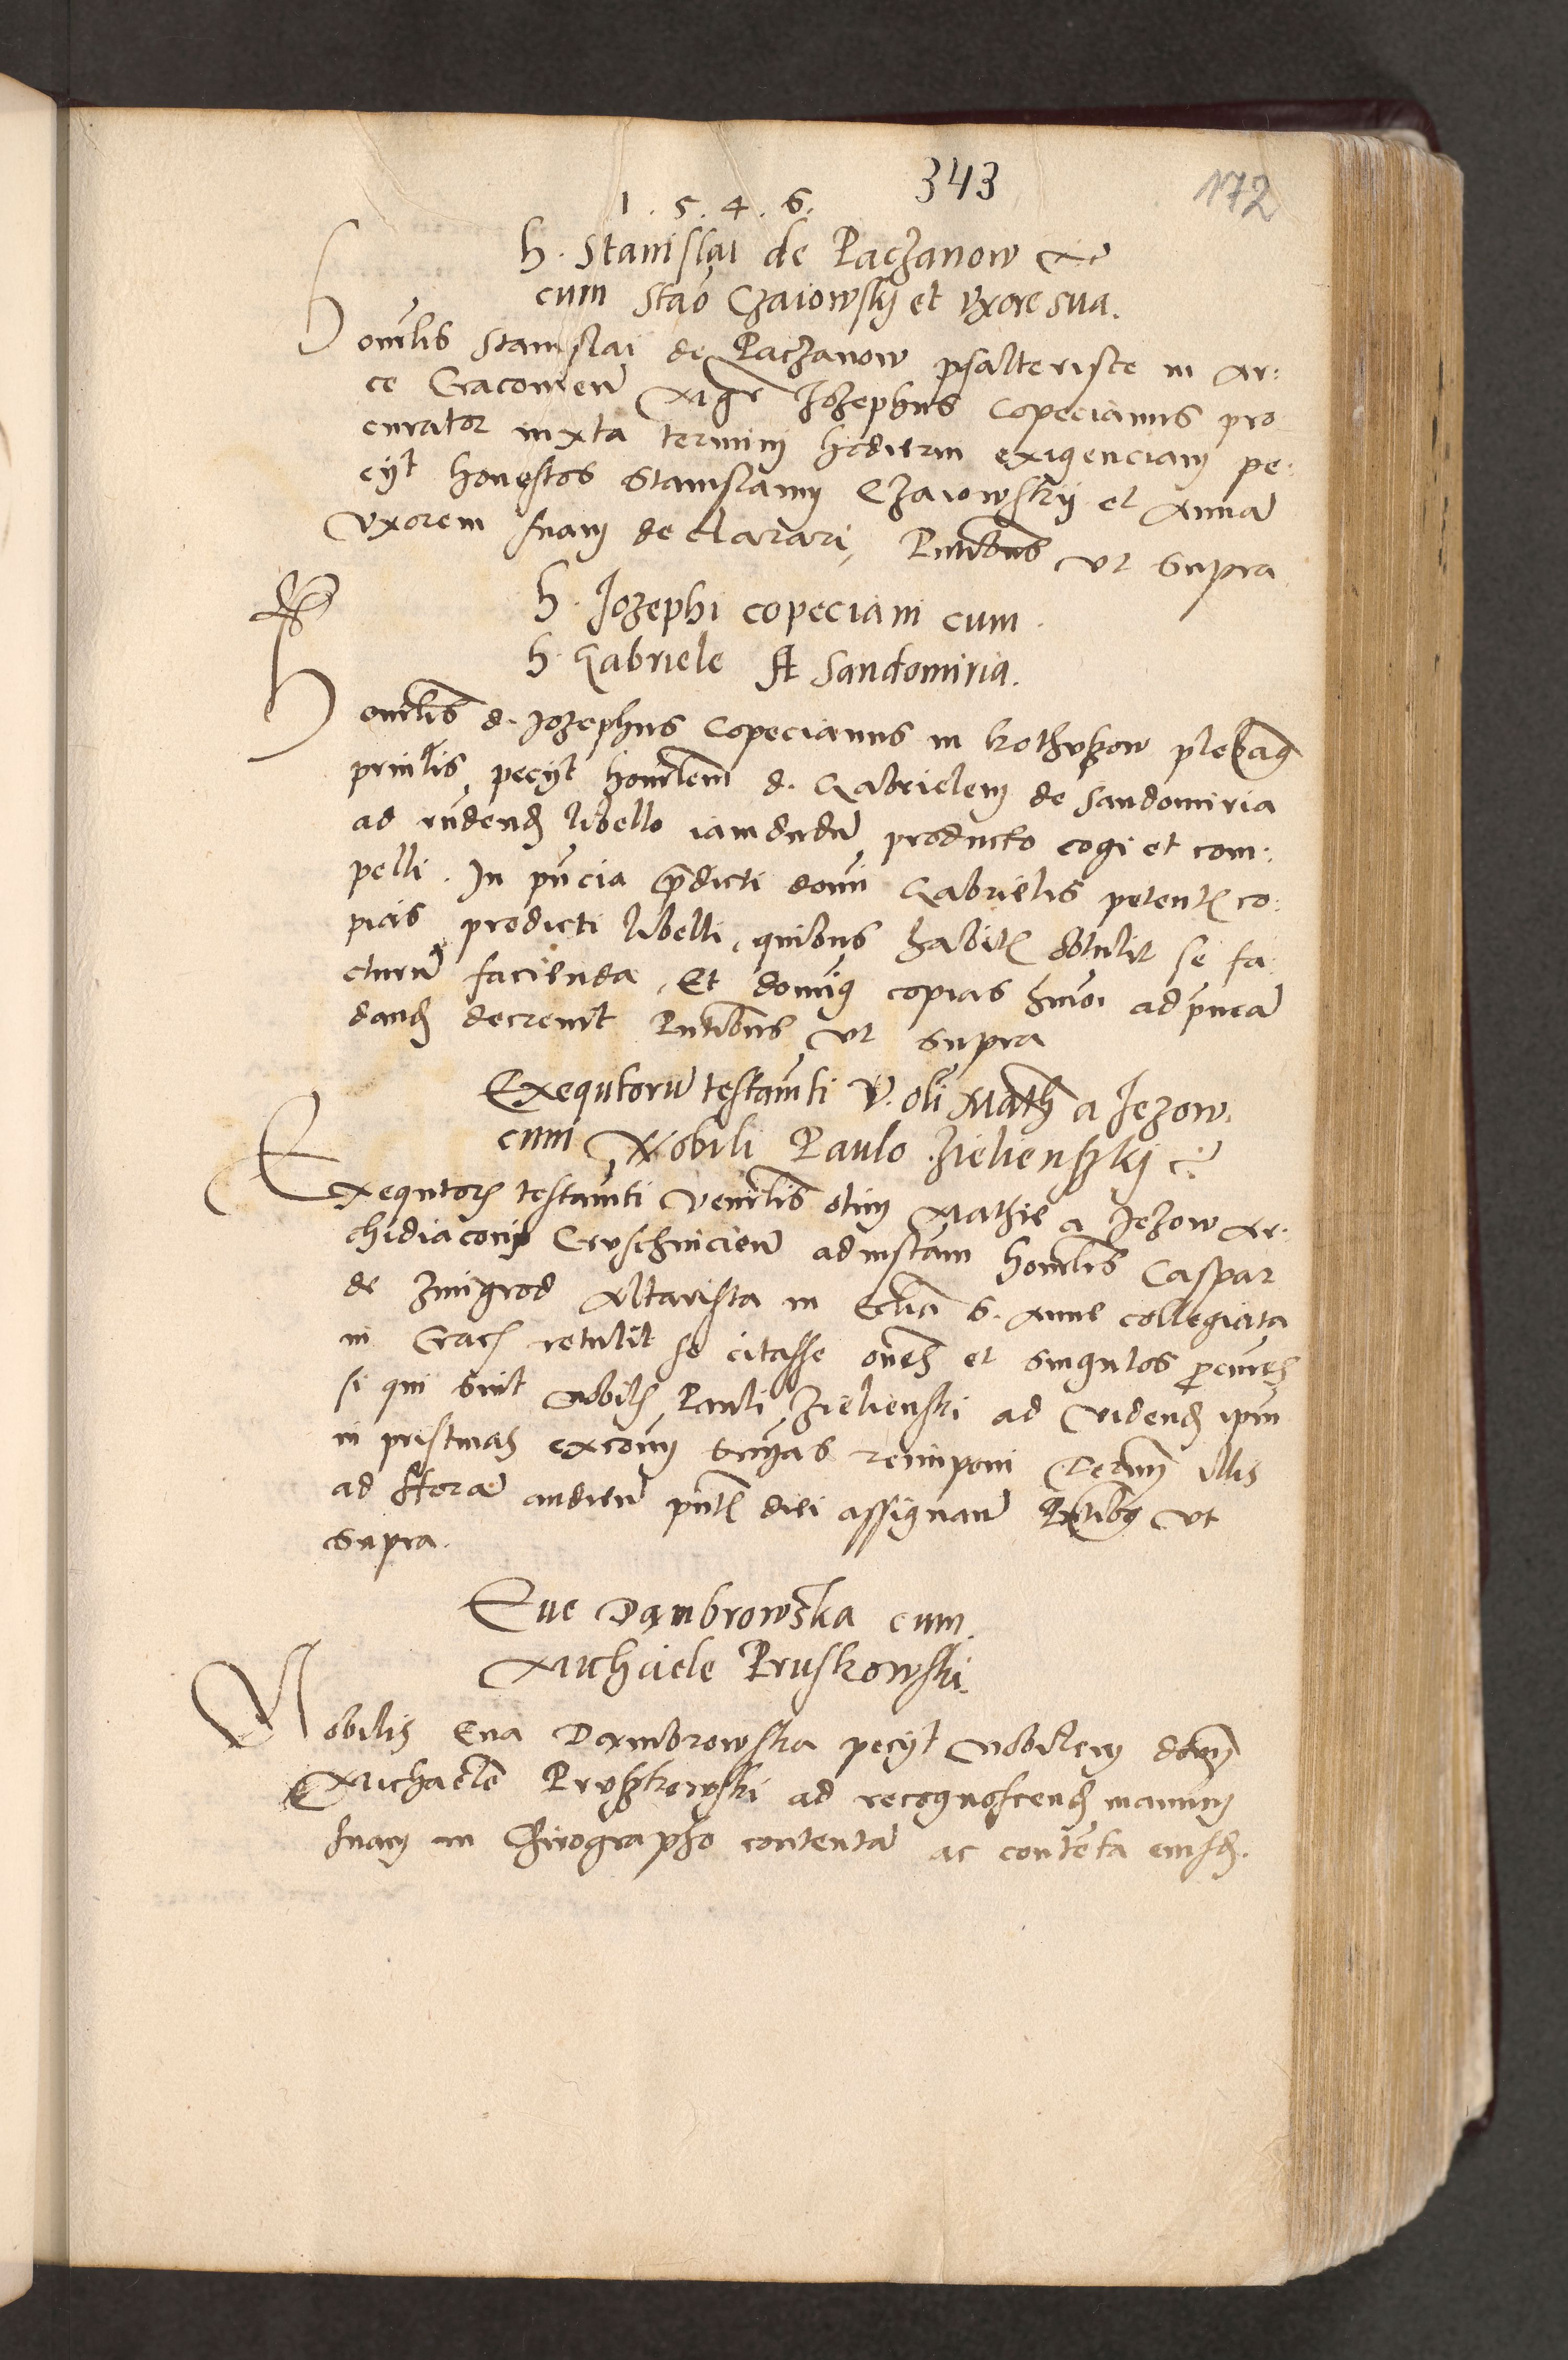 343
172
1 . 5 . 4 . 6.
h. Stanislai de Paczanow etc
cum Stao Czaiowskj et Uxore sua.
Honorlis Stanislai de Paczanow psalteriste in Ar:
ce Cracovien Mgr Jozephus Copecianus pro
curator iuxta termini hodierni exigenciam pe:
cyt honestos Stanislaum Czaiowskij et Anna
Uxorem suam declarari, Pntibus Ut supra
h. Jozephi Copeciani cum
h. Gabriele A Sandomiria.
Honorlis d. Jozephus Copecianus in plebag
prinlis pecyt honorlem d. Gabrielem de Sandomiria
ad rndend libello iamdudu producto cogi et com:
pelli. In pncia predicti domi Gabrielis petent co:
pias predicti libelli, quibus habit obtulit se fa
cturu facienda, Et domig copias hmoi ad pnca
dand decrevit Pntibus Ut supra
Exequtoru testamti V. oli Math a Jezow.
cum Nobili Paulo Zielienskj
Exequtor testamti Venerlis olim Mathie a Jezow Ar:
chidiaconi Cruschwicien ad instam honorlis Caspar
de Zmigrod Altarista in Ecclia S. Anne collegiata
in Crac retulit se citasse omes et singulos
si qui sint Nobil Pauli Zielienski ad Videnđ ipm
in pristinas excom snias reimponi Termin illis
ad horam audien pnt diei assignan Pntibg Ut
supra.
Eve Dambrowska cum
Michaele Pruskowski.
Nobilis Eva Dambrowska pecyt Nobilem dom
Michaele Pruskowski ad recognoscend manum
suam in Chirographo contenta ac contenta eiusd.